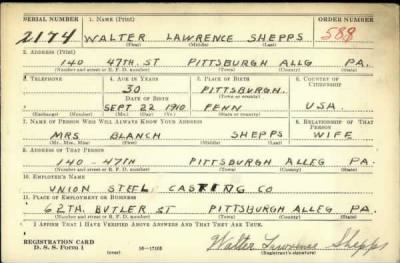 SERIAL NUMBER 1. NAME (Print) ORDER NUMBER
2174 WALTER LAWRENCE SHEPPS 588
(First) (Middle) (Last)
2. ADDRESS (Print)
140 47TH. ST PITTSBURGH ALLG PA.
(Number and street or R. F. D. number) (Town) (County) (State)
3. TELEPHONE 4. AGE IN YEARS 5. PLACE OF BIRTH 6. COUNTRY OF CITIZENSHIP
30 PITTSBURGH.
DATE OF BIRTH (Town or county)
SEPT 22 1910 PENN USA.
(Exchange) (Number) (Mo.) (Day) (Yr.) (State or country)
7. NAME OF PERSON WHO WILL ALWAYS KNOW YOUR ADDRESS 8. RELATIONSHIP OF THAT PERSON
MRS BLANCH SHEPPS WIFE
(Mr., Mrs., Miss) (First) (Middle) (Last)
9. ADDRESS OF THAT PERSON
140 - 47TH PITTSBURGH ALLEG PA.
(Number and street or R. F. D. number) (Town) (County) (State)
10. EMPLOYER'S NAME
UNION STEEL CASTING CO
11. PLACE OF EMPLOYMENT OR BUSINESS
62TH. BUTLER ST PITTSBURGH ALLEG PA.
(Number and street or R. F. D. number) (Town) (County) (State)
I AFFIRM THAT I HAVE VERIFIED ABOVE ANSWERS AND THAT THEY ARE TRUE.
REGISTRATION CARD
D. S. S. Form 1 (over) Walter Lawrence Shepps
(Registrant's signature)